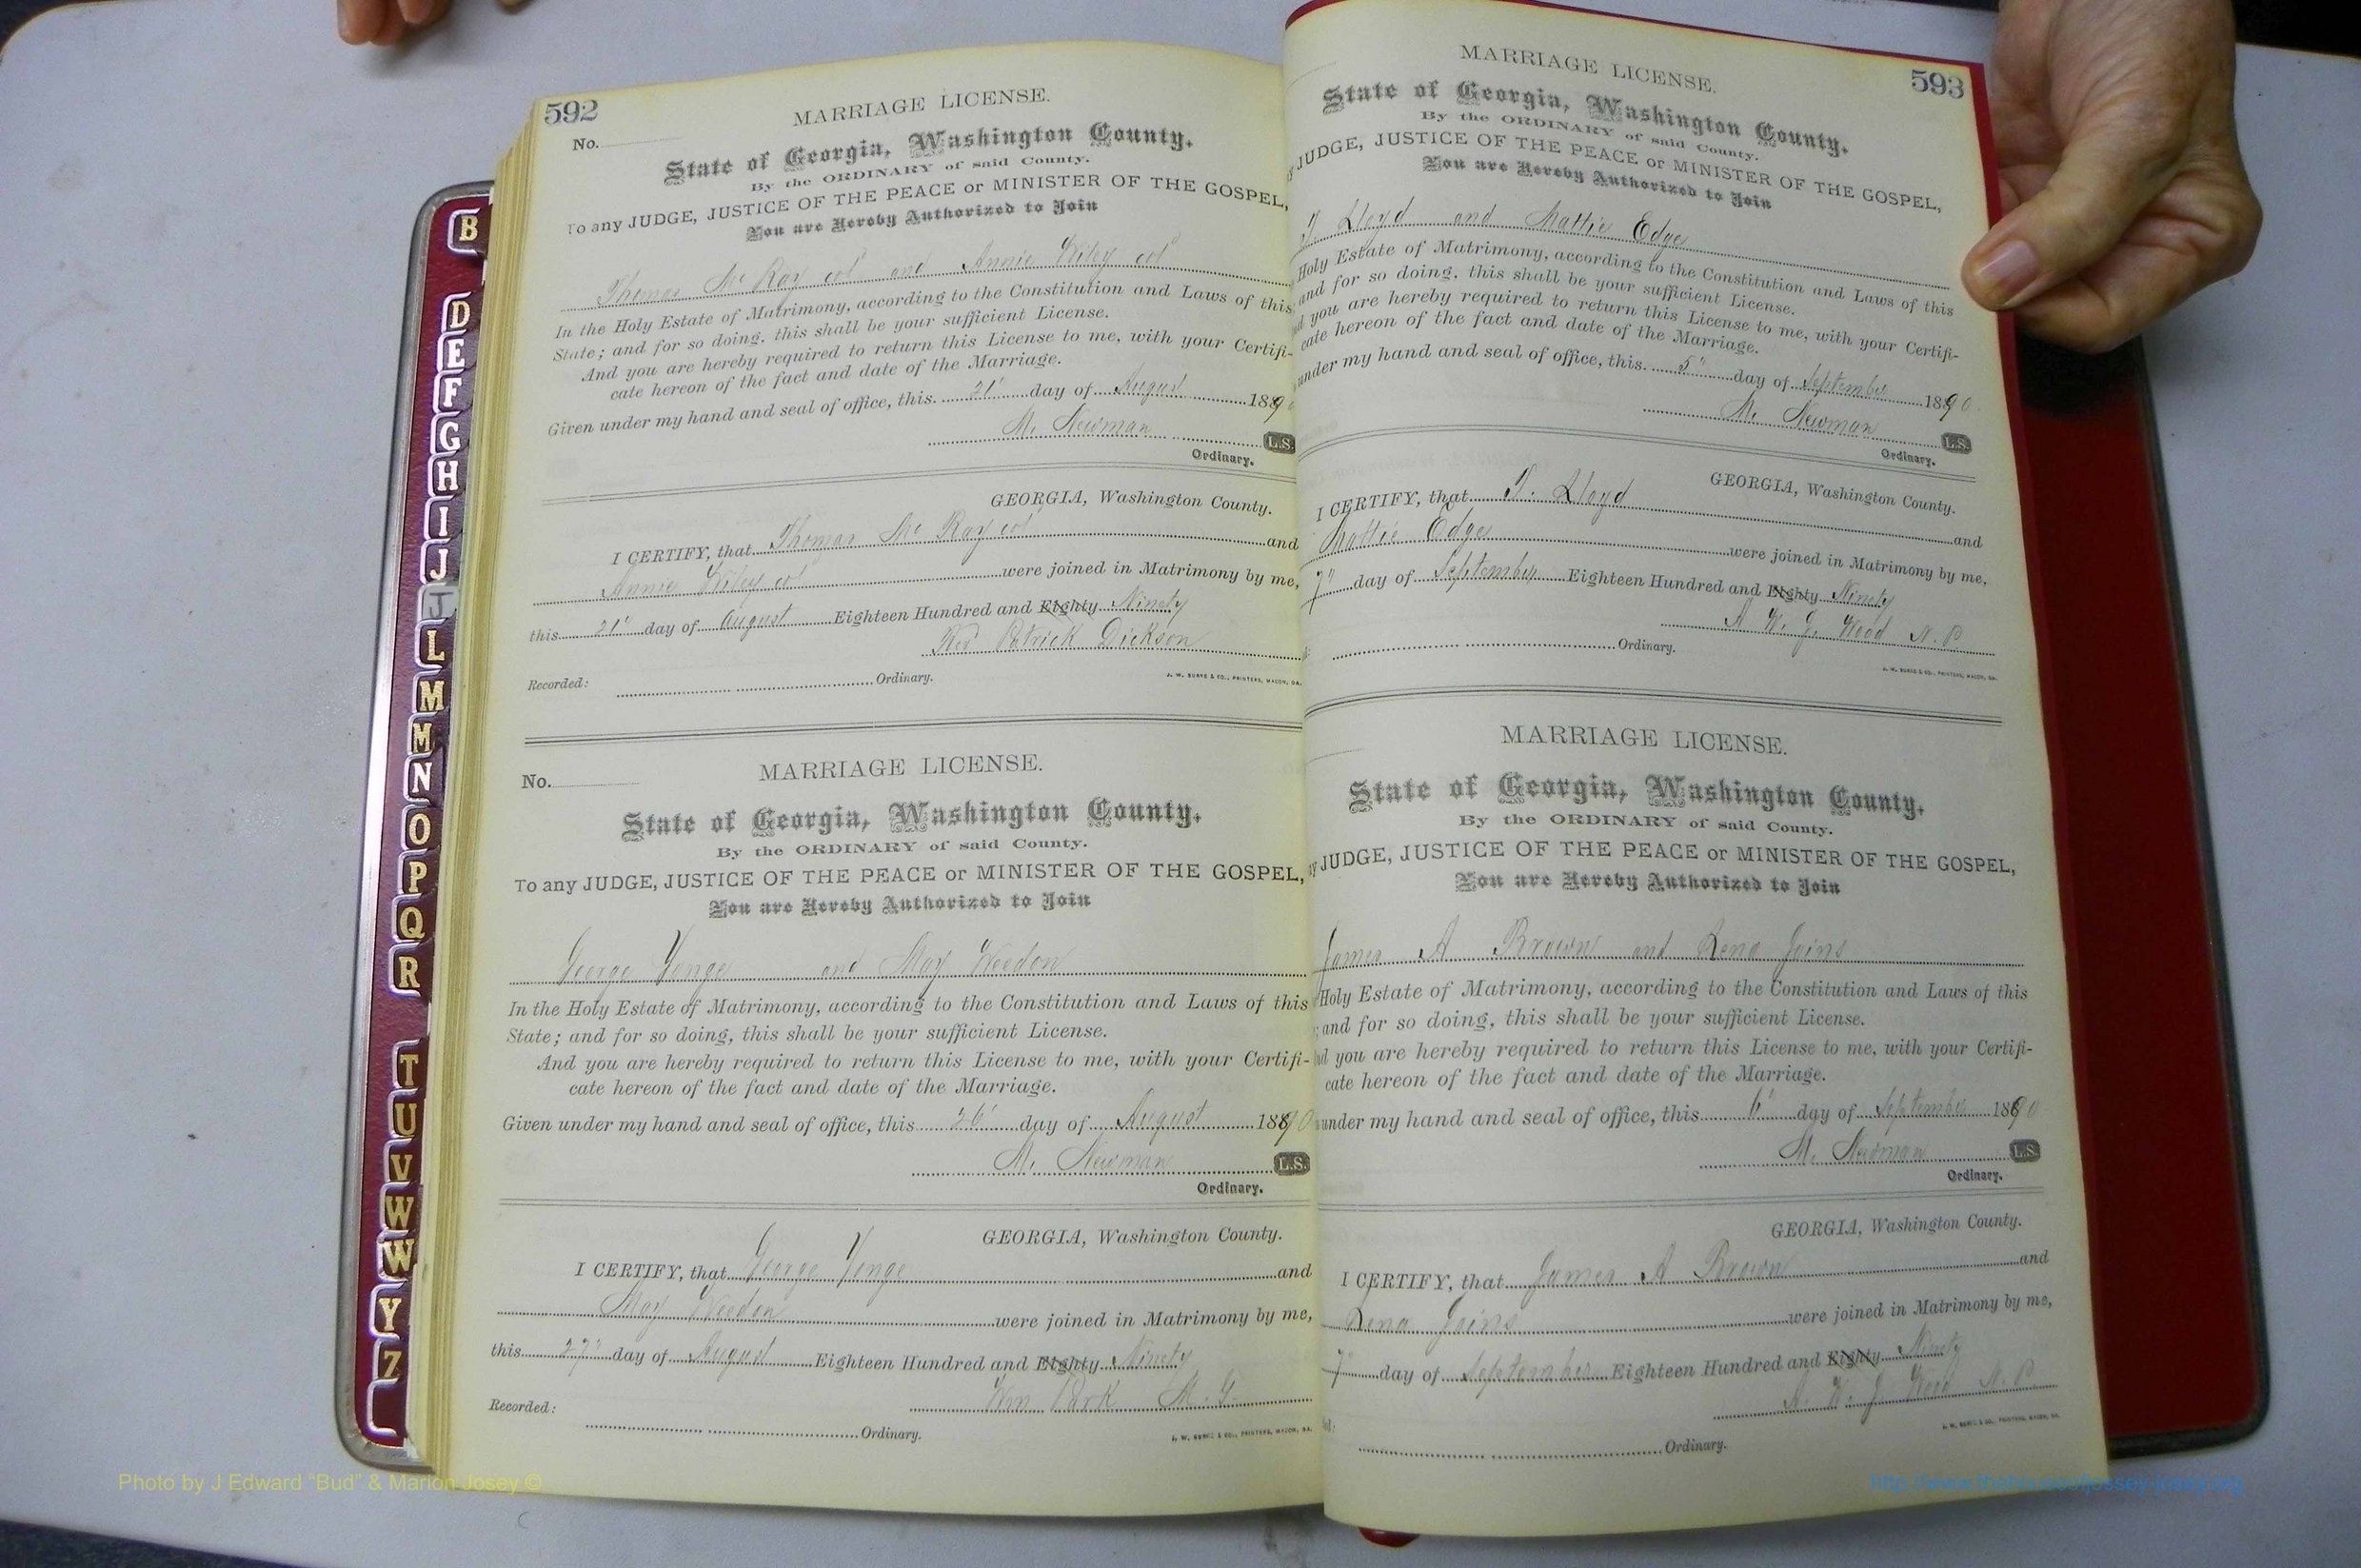 592
MARRIAGE LICENSE.
No.
State of Georgia, Washington County.
By the ORDINARY of said County.
To any JUDGE, JUSTICE OF THE PEACE or MINISTER OF THE GOSPEL,
You are Hereby Authorized to Join
Thomas Mc Ray col and Annie Wiley col
In the Holy Estate of Matrimony, according to the Constitution and Laws of this
State; and for so doing, this shall be your sufficient License.
And you are hereby required to return this License to me, with your Certifi-
cate hereon of the fact and date of the Marriage.
Given under my hand and seal of office, this 21' day of August 1890
M. Newman L.S.
Ordinary.
GEORGIA, Washington County.
I CERTIFY, that Thomas Mc Ray col and
Annie Wiley col were joined in Matrimony by me,
this 21' day of August Eighteen Hundred and Eighty Ninety
Rev Patrick Dickson
Recorded: Ordinary.
J. W. BURKE & CO., PRINTERS, MACON, GA.
No.
MARRIAGE LICENSE.
State of Georgia, Washington County.
By the ORDINARY of said County.
To any JUDGE, JUSTICE OF THE PEACE or MINISTER OF THE GOSPEL,
You are Hereby Authorized to Join
George Yonge and May Weedon
In the Holy Estate of Matrimony, according to the Constitution and Laws of this
State; and for so doing, this shall be your sufficient License.
And you are hereby required to return this License to me, with your Certifi-
cate hereon of the fact and date of the Marriage.
Given under my hand and seal of office, this 26' day of August 1890
M. Newman L.S.
Ordinary.
GEORGIA, Washington County.
I CERTIFY, that George Yonge and
May Weedon were joined in Matrimony by me,
this 27" day of August Eighteen Hundred and Eighty Ninety
Wm Park M. G.
Recorded: Ordinary.
J. W. BURKE & CO., PRINTERS, MACON, GA.
593
MARRIAGE LICENSE.
State of Georgia, Washington County.
By the ORDINARY of said County.
JUDGE, JUSTICE OF THE PEACE or MINISTER OF THE GOSPEL,
You are Hereby Authorized to Join
Lloyd and Mattie Edge
Holy Estate of Matrimony, according to the Constitution and Laws of this
and for so doing, this shall be your sufficient License.
you are hereby required to return this License to me, with your Certifi-
cate hereon of the fact and date of the Marriage.
under my hand and seal of office, this 5" day of September 1890.
M. Newman L.S.
Ordinary.
GEORGIA, Washington County.
I CERTIFY, that Lloyd and
Mattie Edge were joined in Matrimony by me,
7" day of September Eighteen Hundred and Eighty Ninety
A W. J. Wood N. P.
Ordinary.
J. W. BURKE & CO., PRINTERS, MACON, GA.
MARRIAGE LICENSE.
State of Georgia, Washington County.
By the ORDINARY of said County.
JUDGE, JUSTICE OF THE PEACE or MINISTER OF THE GOSPEL,
You are Hereby Authorized to Join
James A Brown and Rena Joins
Holy Estate of Matrimony, according to the Constitution and Laws of this
; and for so doing, this shall be your sufficient License.
you are hereby required to return this License to me, with your Certifi-
cate hereon of the fact and date of the Marriage.
under my hand and seal of office, this 6' day of September 1890
M. Newman L.S.
Ordinary.
GEORGIA, Washington County.
I CERTIFY, that James A Brown and
Rena Joins were joined in Matrimony by me,
7" day of September Eighteen Hundred and Eighty Ninety
A. W. J. Wood N. P.
Ordinary.
J. W. BURKE & CO., PRINTERS, MACON, GA.
B
D
E
F
G
H
I
J
J
L
M
M
N
O
P
Q
R
T
U
V
W
W
Y
Z
Photo by J Edward "Bud" & Marion Josey ©
http://www.thehouseofjossey-josey.org